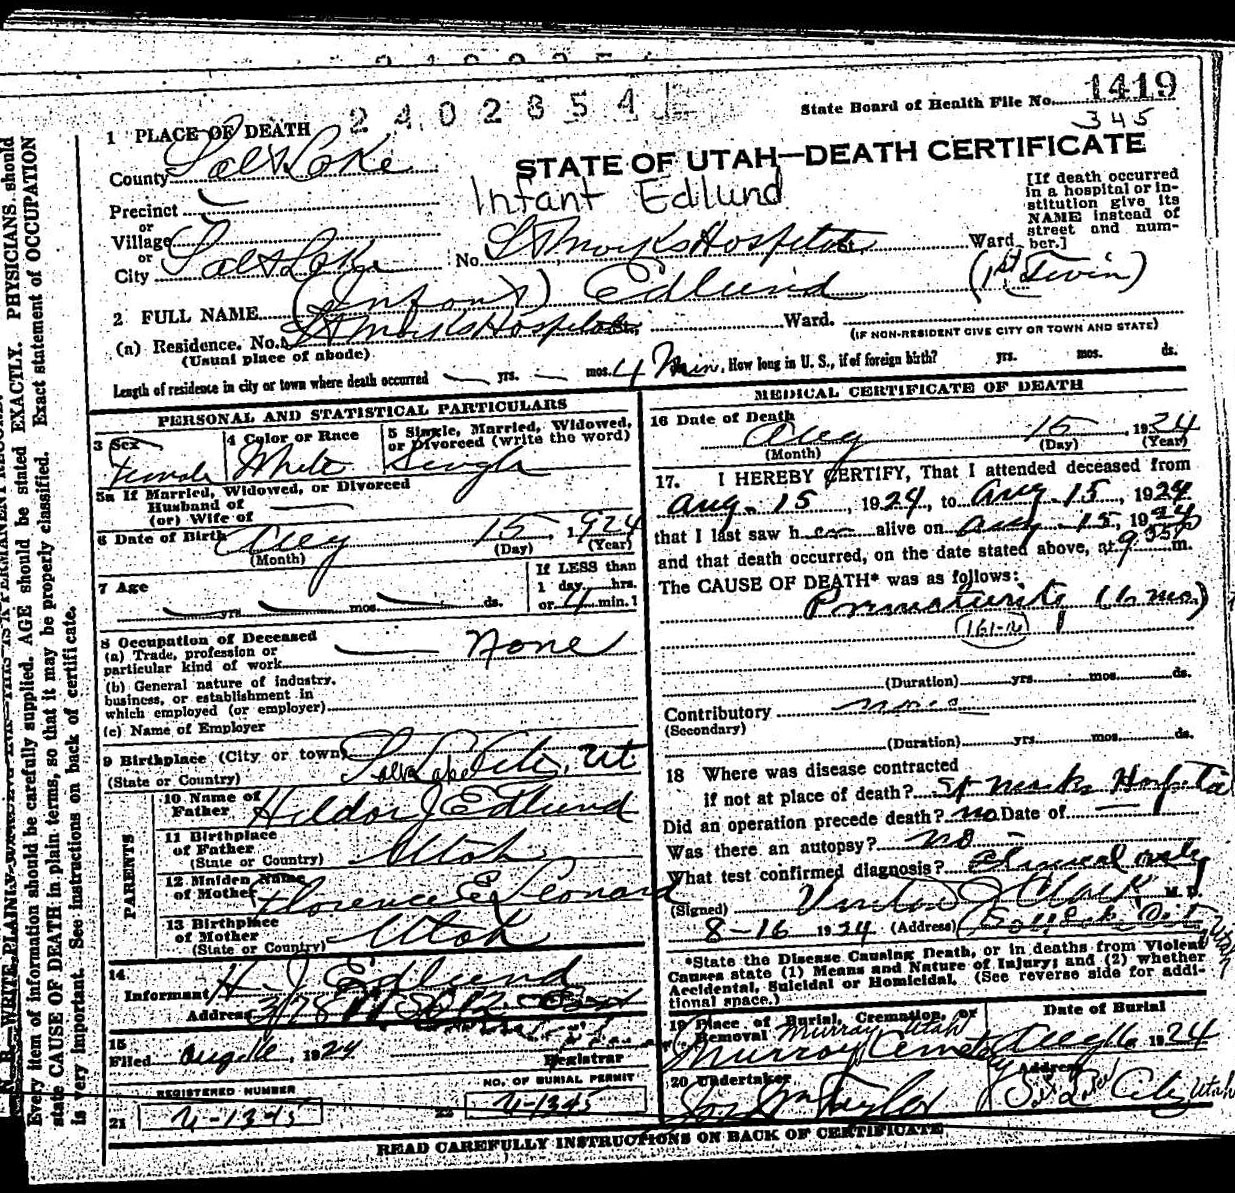 2402854
State Board of Health File No. 1419
345
1 PLACE OF DEATH
STATE OF UTAH—DEATH CERTIFICATE
County Salt Lake
Infant Edlund
[If death occurred in a hospital or institution give its NAME instead of street and number.]
Precinct
or
Village
or
City Salt Lake
No. St Marks Hospital St. Ward
(1st Twin)
2 FULL NAME (Infant) Edlund
(a) Residence. No. St Marks Hospital St. Ward.
(Usual place of abode)
(IF NON-RESIDENT GIVE CITY OR TOWN AND STATE)
Length of residence in city or town where death occurred — yrs. — mos. 4 Min. How long in U. S., if of foreign birth? yrs. mos. ds.
PERSONAL AND STATISTICAL PARTICULARS
3 Sex Female
4 Color or Race White
5 Single, Married, Widowed, or Divorced (write the word) Single
5a If Married, Widowed, or Divorced
Husband of
(or) Wife of
6 Date of Birth Aug 15, 1924
(Month) (Day) (Year)
7 Age
— yrs. — mos. — ds.
If LESS than 1 day, hrs. or 4 min.?
8 Occupation of Deceased
(a) Trade, profession or particular kind of work — None
(b) General nature of industry, business, or establishment in which employed (or employer)
(c) Name of Employer
9 Birthplace (City or town) Salt Lake City, Ut
(State or Country)
PARENTS
10 Name of Father Hildor J Edlund
11 Birthplace of Father (State or Country) Utah
12 Maiden Name of Mother Florence E Leonard
13 Birthplace of Mother (State or Country) Utah
14
Informant H. J. Edlund
Address
15
Filed Aug 16, 1924
Registrar
REGISTERED NUMBER
21 U-1345
NO. OF BURIAL PERMIT
22 U-1345
MEDICAL CERTIFICATE OF DEATH
16 Date of Death Aug 15, 1924
(Month) (Day) (Year)
17. I HEREBY CERTIFY, That I attended deceased from
Aug. 15, 1924, to Aug. 15, 1924
that I last saw h er alive on Aug. 15, 1924
and that death occurred, on the date stated above, at 9 35 p m.
The CAUSE OF DEATH* was as follows:
Prematurity (6 mo.)
(Duration) yrs. mos. ds.
Contributory none
(Secondary)
(Duration) yrs. mos. ds.
18 Where was disease contracted
if not at place of death? St Marks Hospital
Did an operation precede death? no Date of —
Was there an autopsy? no —
What test confirmed diagnosis? Clinical only
(Signed) Clark M. D.
8-16 1924 (Address)
*State the Disease Causing Death, or in deaths from Violent Causes state (1) Means and Nature of Injury; and (2) whether Accidental, Suicidal or Homicidal. (See reverse side for additional space.)
19 Place of Burial, Cremation, or Removal Murray Utah
Murray Cemetery
Date of Burial
Aug 16 1924
20 Undertaker
Jos Wm Taylor
Address
S. Lake City Utah
READ CAREFULLY INSTRUCTIONS ON BACK OF CERTIFICATE
Every item of information should be carefully supplied. AGE should be stated EXACTLY. PHYSICIANS should
state CAUSE OF DEATH in plain terms, so that it may be properly classified. Exact statement of OCCUPATION
is very important. See instructions on back of certificate.